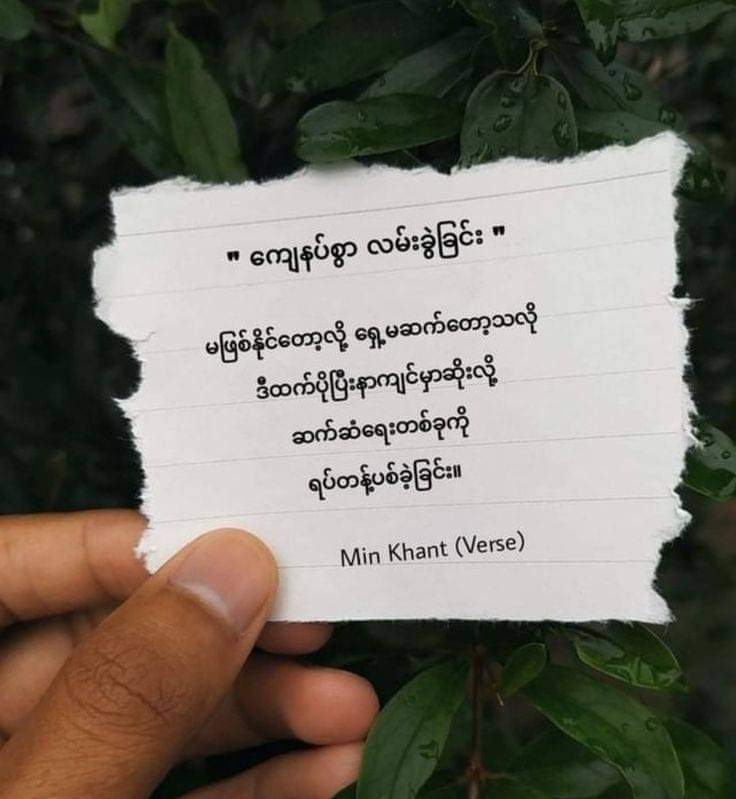 " ကျေနပ်စွာ လမ်းခွဲခြင်း "
မဖြစ်နိုင်တော့လို့ ရှေ့မဆက်တော့သလို
ဒီထက်ပိုပြီးနာကျင်မှာဆိုးလို့
ဆက်ဆံရေးတစ်ခုကို
ရပ်တန့်ပစ်ခဲ့ခြင်း။
Min Khant (Verse)